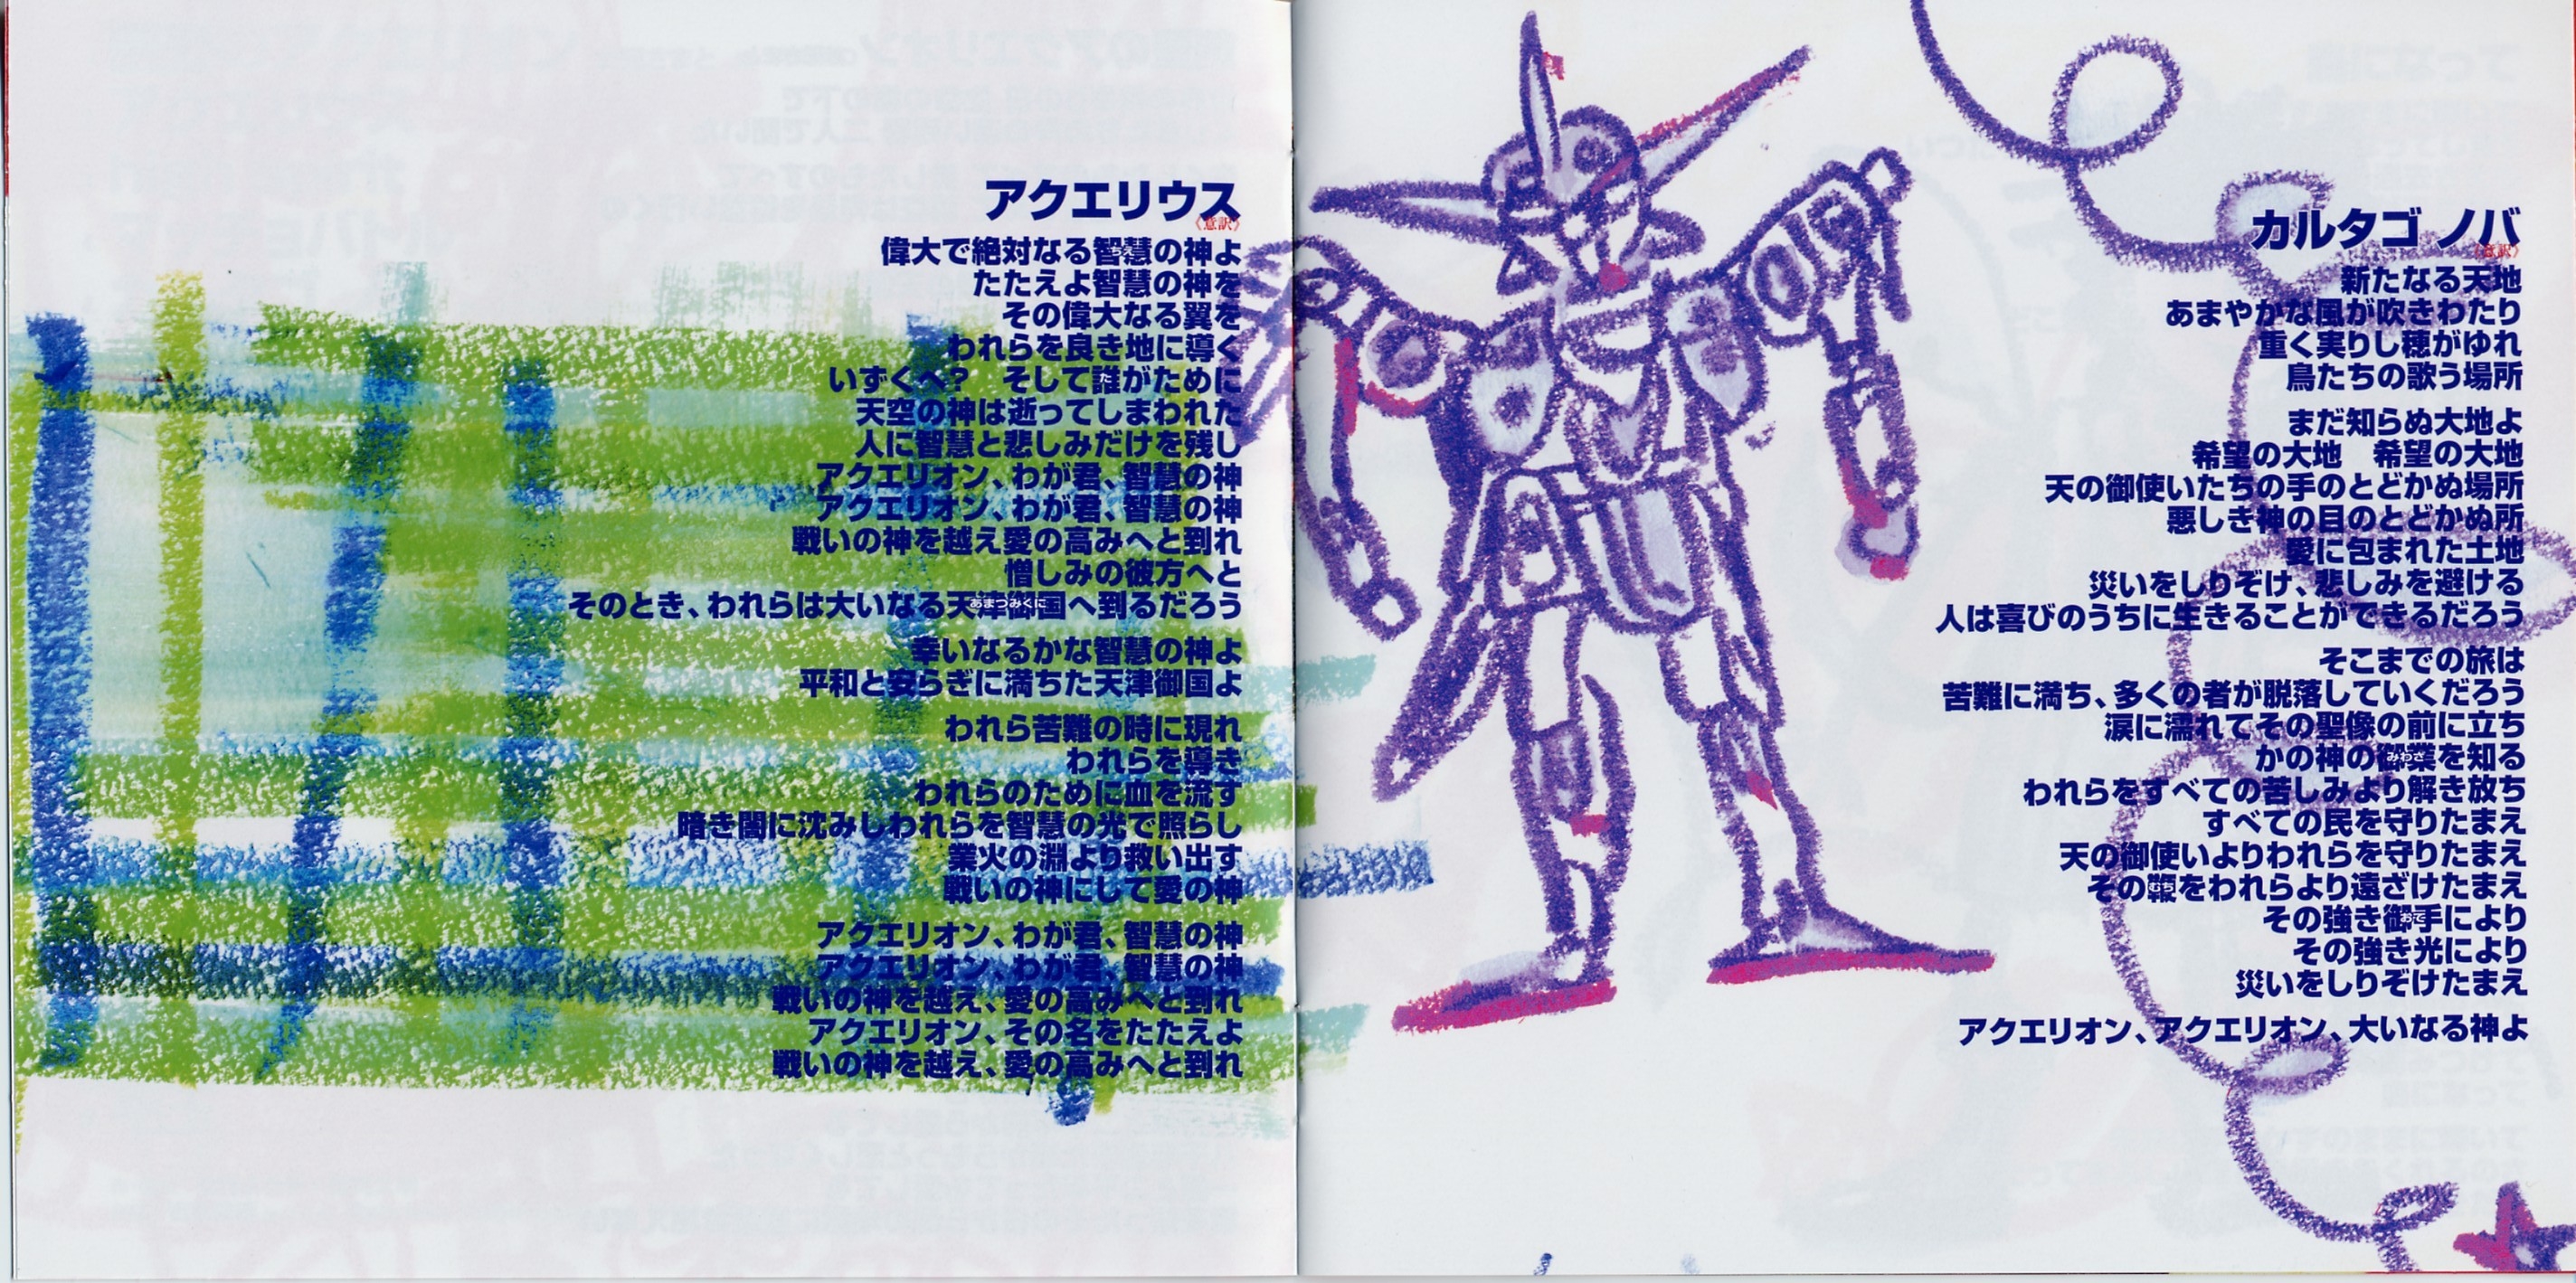 アクエリウス
《意訳》
偉大で絶対なる智慧の神よ
たたえよ智慧の神を
その偉大なる翼を
われらを良き地に導く
いずくへ？　そして誰がために
天空の神は逝ってしまわれた
人に智慧と悲しみだけを残し
アクエリオン、わが君、智慧の神
アクエリオン、わが君、智慧の神
戦いの神を越え愛の高みへと到れ
憎しみの彼方へと
そのとき、われらは大いなる天津御国へ到るだろう
あまつみくに
幸いなるかな智慧の神よ
平和と安らぎに満ちた天津御国よ
われら苦難の時に現れ
われらを導き
われらのために血を流す
暗き闇に沈みしわれらを智慧の光で照らし
業火の淵より救い出す
戦いの神にして愛の神
アクエリオン、わが君、智慧の神
アクエリオン、わが君、智慧の神
戦いの神を越え、愛の高みへと到れ
アクエリオン、その名をたたえよ
戦いの神を越え、愛の高みへと到れ
カルタゴ ノバ
《意訳》
新たなる天地
あまやかな風が吹きわたり
重く実りし穂がゆれ
鳥たちの歌う場所
まだ知らぬ大地よ
希望の大地　希望の大地
天の御使いたちの手のとどかぬ場所
悪しき神の目のとどかぬ所
愛に包まれた土地
災いをしりぞけ、悲しみを避ける
人は喜びのうちに生きることができるだろう
そこまでの旅は
苦難に満ち、多くの者が脱落していくだろう
涙に濡れてその聖像の前に立ち
かの神の御業を知る
みわざ
われらをすべての苦しみより解き放ち
すべての民を守りたまえ
天の御使いよりわれらを守りたまえ
その鞭をわれらより遠ざけたまえ
むち
その強き御手により
おて
その強き光により
災いをしりぞけたまえ
アクエリオン、アクエリオン、大いなる神よ